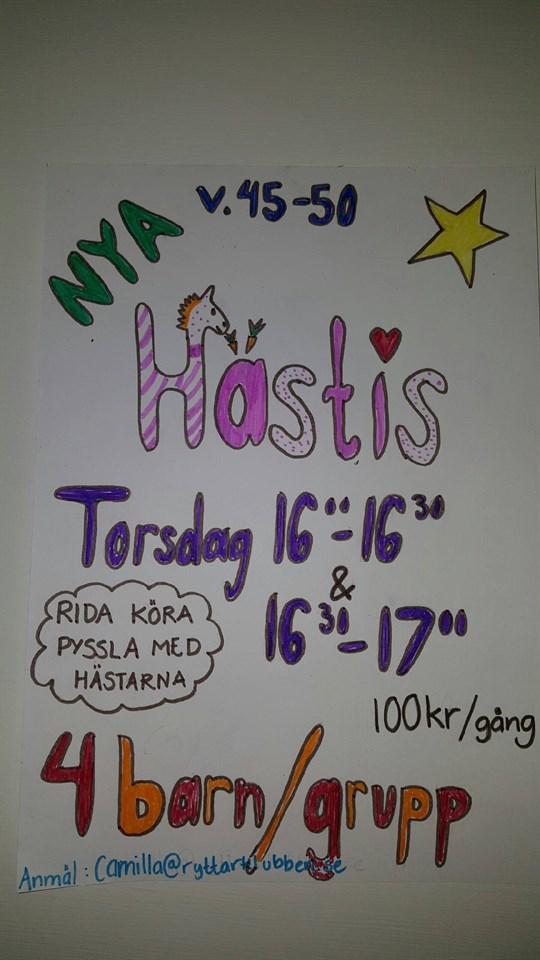 NYA
v.45-50
Hästis
Torsdag 16⁰⁰-16³⁰
&
16³⁰-17⁰⁰
RIDA KÖRA
PYSSLA MED
HÄSTARNA
100kr/gång
4 barn/grupp
Anmäl: Camilla@ryttarklubben.se